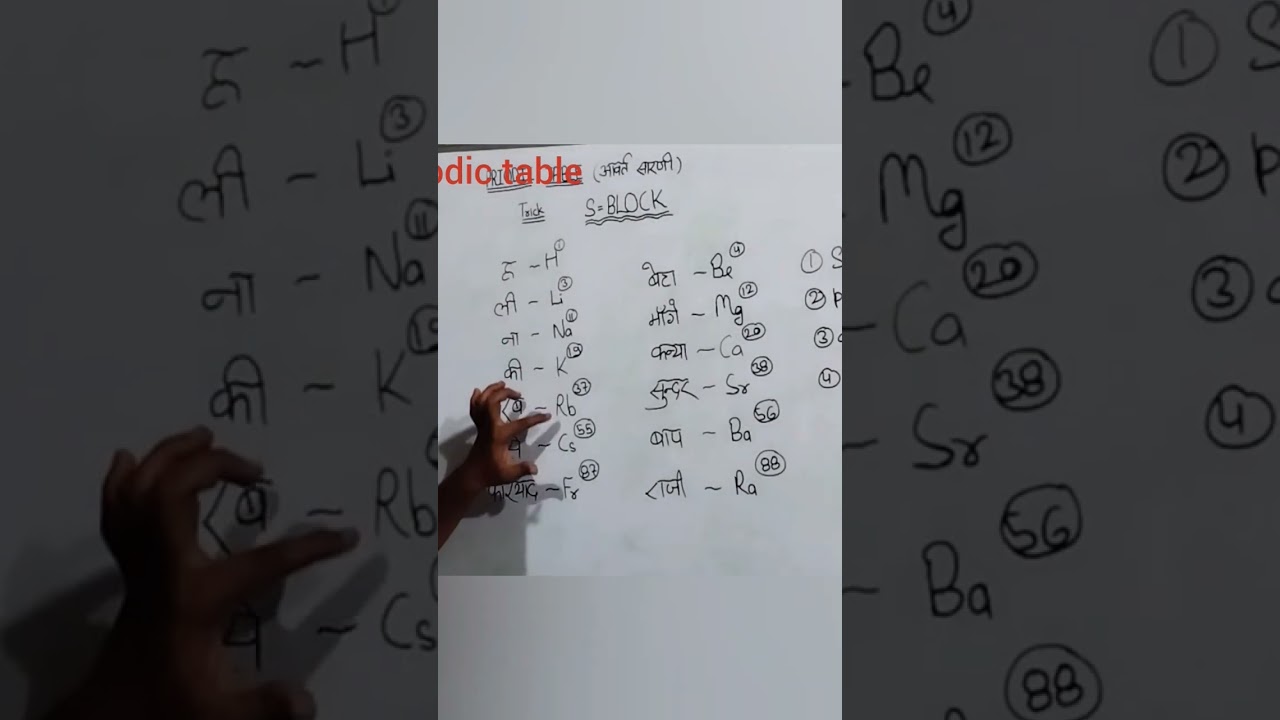 odic table (आवर्त सारणी)
Trick S=BLOCK
ह - H ①
ली - Li ③
ना - Na ⑪
की - K ⑲
रब - Rb ㊲
Cs 55
फरियाद - Fr 87
बेटा - Be ④
माँगे - Mg ⑫
कन्या - Ca ⑳
सुन्दर - Sr 38
बाप - Ba 56
राजी - Ra 88
① S
② P
③
④